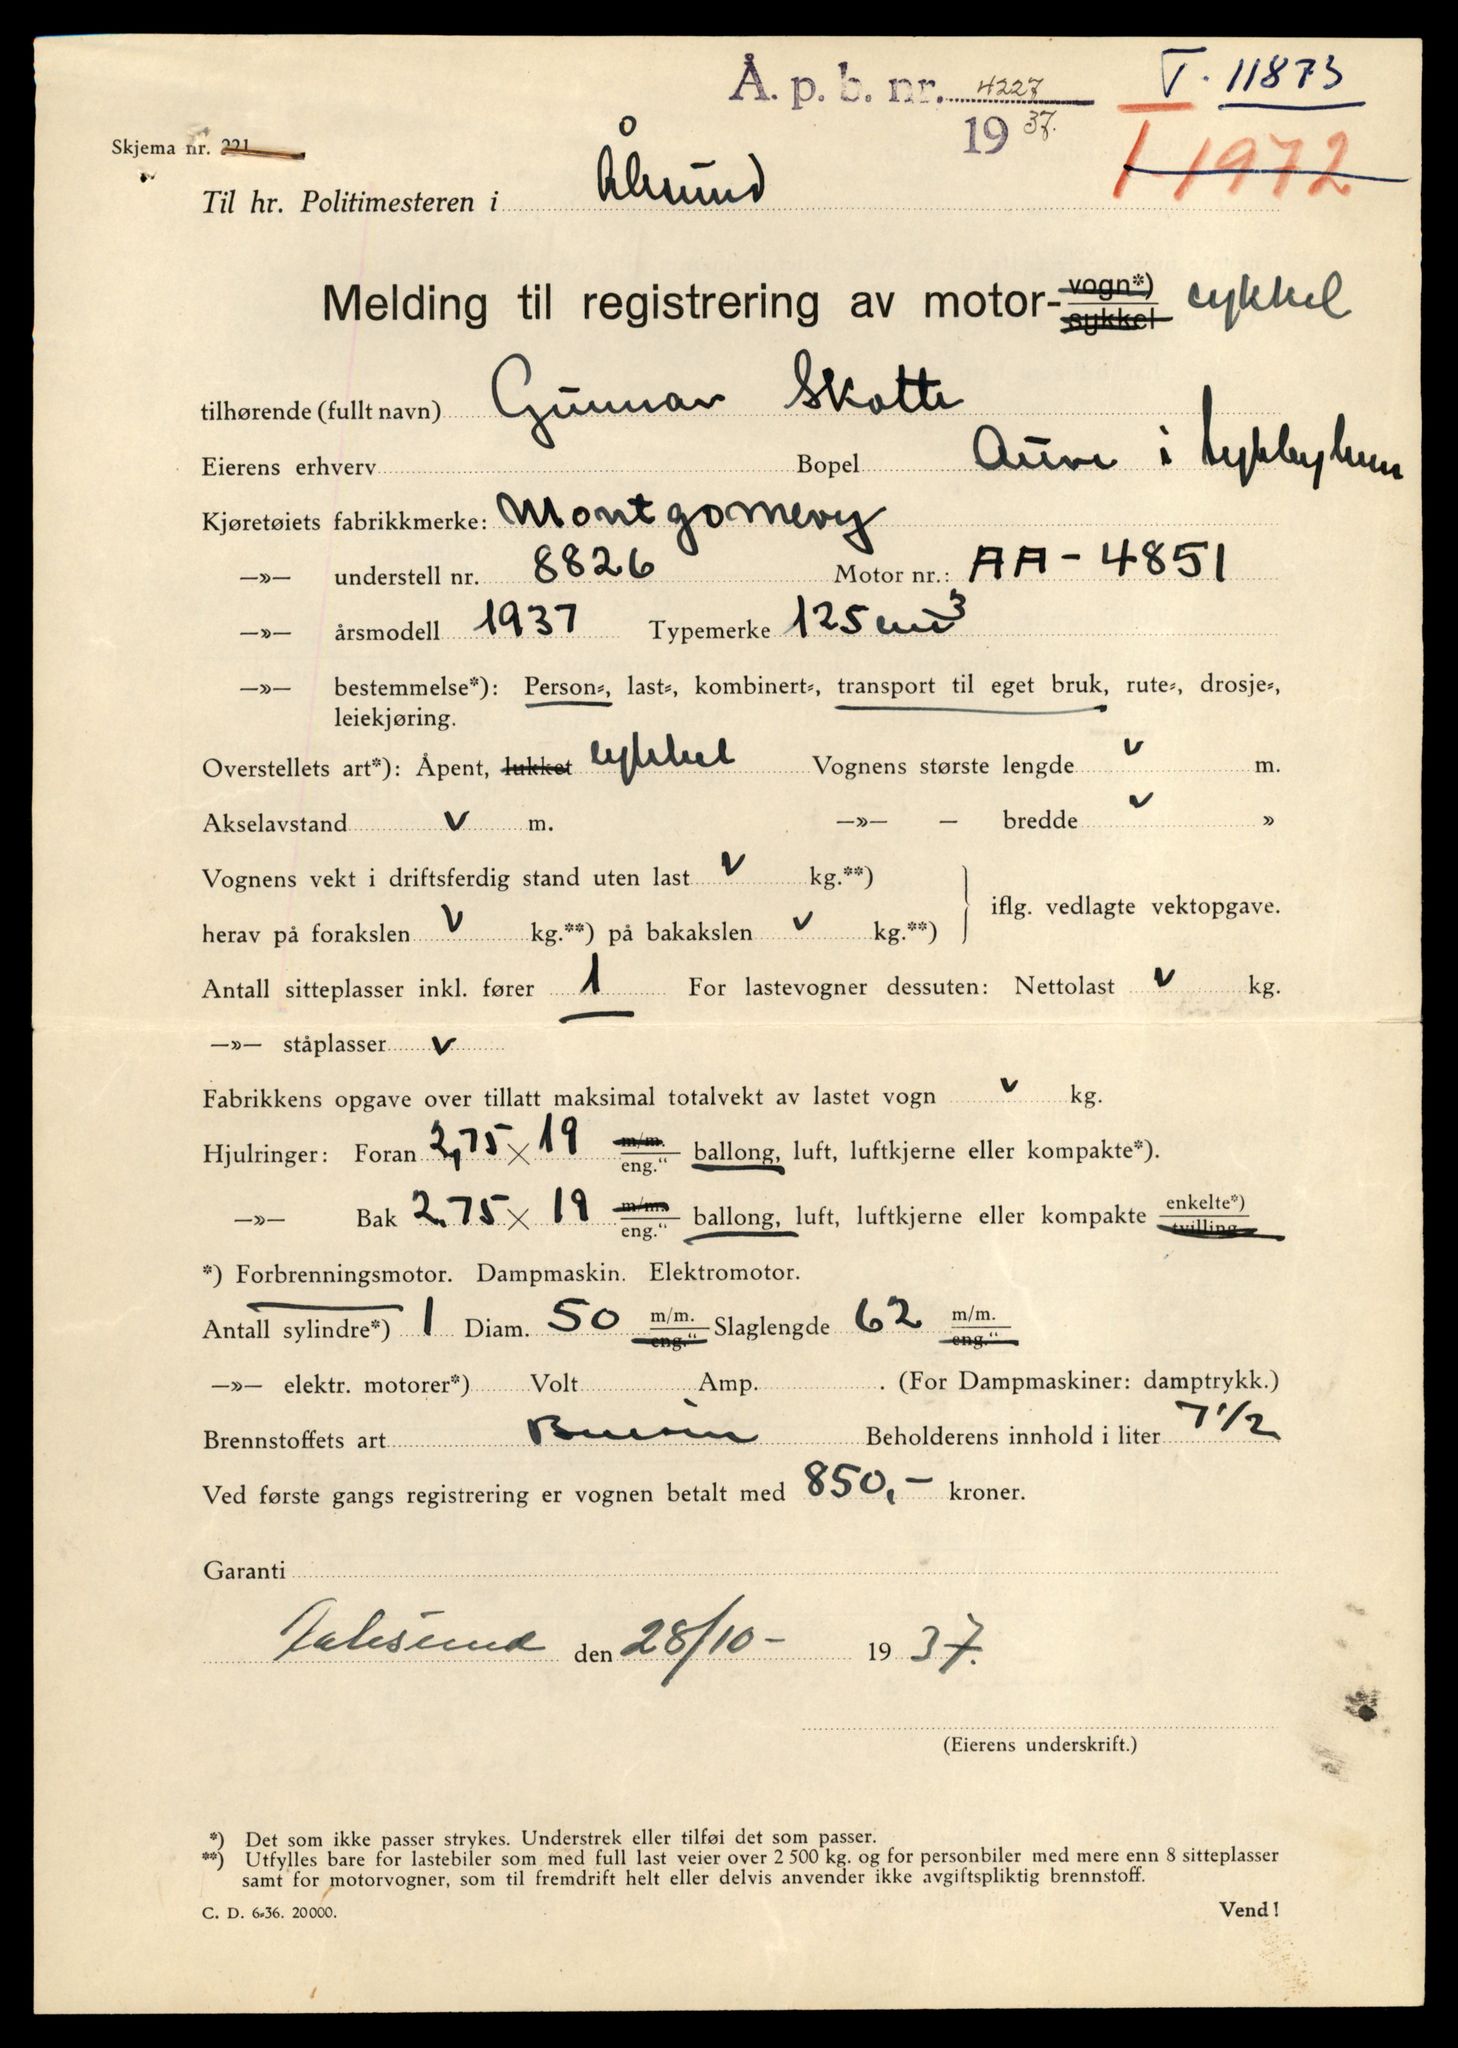 Å. p. b. nr. 4227 T. 11873
1937.
T 1972
Skjema nr. 221
Til hr. Politimesteren i Ålesund
Melding til registrering av motor-vogn*) sykkel cykkel
tilhørende (fullt navn) Gunnar Skotte
Eierens erhverv Bopel Aure i Sykkylven
Kjøretøiets fabrikkmerke: Montgomery
—»— understell nr. 8826 Motor nr.: AA-4851
—»— årsmodell 1937 Typemerke 125 cm³
—»— bestemmelse*): Person-, last-, kombinert-, transport til eget bruk, rute-, drosje-,
leiekjøring.
Overstellets art*): Åpent, lukket cykkel Vognens største lengde v m.
Akselavstand v m. —»— — bredde v »
Vognens vekt i driftsferdig stand uten last v kg.**)
herav på forakslen v kg.**) på bakakslen v kg.**) iflg. vedlagte vektopgave.
Antall sitteplasser inkl. fører 1 For lastevogner dessuten: Nettolast v kg.
—»— ståplasser v
Fabrikkens opgave over tillatt maksimal totalvekt av lastet vogn v kg.
Hjulringer: Foran 2,75 × 19 m/m. eng." ballong, luft, luftkjerne eller kompakte*).
—»— Bak 2,75 × 19 m/m. eng." ballong, luft, luftkjerne eller kompakte enkelte*) tvilling
*) Forbrenningsmotor. Dampmaskin. Elektromotor.
Antall sylindre*) 1 Diam. 50 m/m. eng." Slaglengde 62 m/m. eng."
—»— elektr. motorer*) Volt Amp. . (For Dampmaskiner: damptrykk.)
Brennstoffets art Bensin Beholderens innhold i liter 7 1/2
Ved første gangs registrering er vognen betalt med 850,- kroner.
Garanti
Aalesund den 28/10- 1937.
(Eierens underskrift.)
*) Det som ikke passer strykes. Understrek eller tilføi det som passer.
**) Utfylles bare for lastebiler som med full last veier over 2 500 kg. og for personbiler med mere enn 8 sitteplasser
samt for motorvogner, som til fremdrift helt eller delvis anvender ikke avgiftspliktig brennstoff.
C. D. 6-36. 20000. Vend!